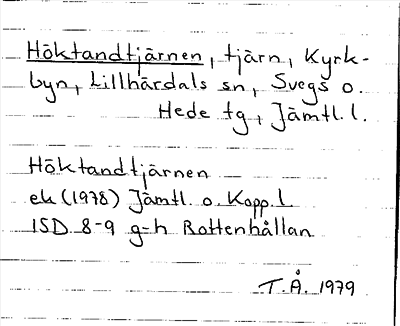 Höktandtjärnen, tjärn, Kyrk-
byn, Lillhärdals sn, Svegs o.
Hede tg, Jämtl. l.
Höktandtjärnen
ek (1978) Jämtl. o. Kopp. l.
15D 8-9 g-h Rottenhållan
T.Å. 1979